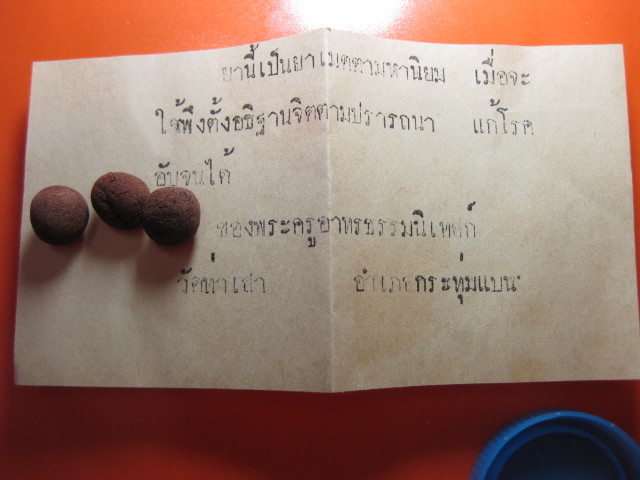 ยานี้เป็นยาเมตตามหานิยม เมื่อจะ
ใช้พึงตั้งอธิฐานจิตตามปรารถนา แก้โรค
อับจนได้
ของพระครูอาทรธรรมนิเทศก์
วัดท่าเสา อำเภอกระทุ่มแบน